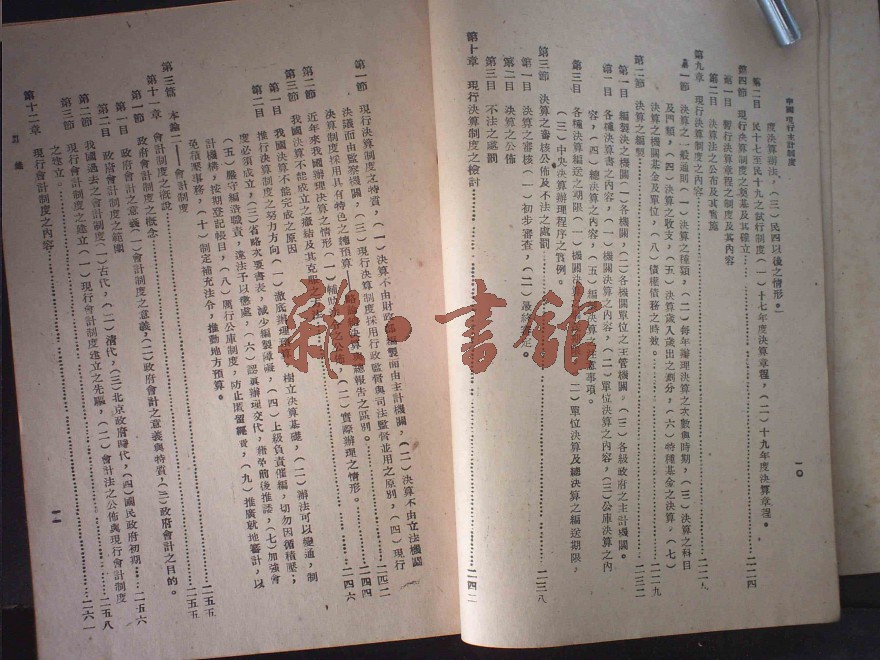 中國現行主計制度
一〇
度決算辦法，（三）民四以後之情形。
第二目　民十七至民十九之試行制度（一）十七年度決算章程，（二）十九年度決算章程。
第四節　現行決算制度之奠基及其確立……二二四
第一目　暫行決算章程之制度及其內容
第二目　決算法之公布及其實施
第九章　現行決算制度之內容……二二九
第一節　決算之一般通則（一）決算之種類，（二）每年辦理決算之次數與時期，（三）決算之科目
及四類，（四）決算之收支，（五）決算歲入歲出之劃分，（六）特種基金之決算。（七）
決算之機關基金及單位，（八）債權債務之時效。……二二九
第二節　決算之編製……二三二
第一目　編製決之機關（一）各機關，（二）各機關單位之主管機關。（三）各級政府之主計機關。
第二目　各種決算書之內容，（一）機關決算之內容，（二）單位決算之內容，（三）公庫決算之內
容，（四）總決算之內容，（五）編
決算之
注意事項。
第三目　各種決算編送之期限，（一）機關決
（二）單位決算及總決算之編送期限，
（三）中央決算辦理程序之實例。
第三節　決算之審核公佈及不法之處罰……二三八
第一目　決算之審核（一）初步審查，（二）最終審定。
第二目　決算之公佈
第三目　不法之處罰
第十章　現行決算制度之檢討……二四二
第一節　現行決算制度之特質，（一）決算不由財政部編製而由主計機關，（二）決算不由立法機關
決議而由監察機關，（三）現行決算制度採用行政監督與司法監督並用之原則，（四）現行
決算制度採用具有特色之總預算
決算
總報告之區別。……二四二
第二節　近年來我國辦理決算之情形（一）輔助
之公佈，（二）實際辦理之情形。……二四四
第三節　我國決算不能成立之癥結及其克服之
……二四六
第一目　我國決算不能完成之原因
第二目　推行決算制度之努力方向（一）澈底辦理預算
樹立決算基礎，（二）辦法可以變通，制
度必須成立，（三）省略次要書表，減少編製障礙，（四）上級負責催編，切勿因循積壓，
（五）嚴守編造職責，違法予以懲處，（六）認眞辦理交代，藉免前後推諉，（七）加強會
計機構，按期登記帳目，（八）厲行公庫制度，防止匿留
，（九）推廣就地審計，以
免積案事務，（十）制定補充法令，推動地方預算。
第三篇　本論二——會計制度……二五五
第十一章　會計制度之概說……二五五
第一節　政府會計制度之概念
第一目　政府會計之意義（一）會計制度之意義，（二）政府會計之意義與特質，（三）政府會計之目的。
第二目　政府會計制度之範圍……二五六
第二節　我國過去之會計制度（一）古代，（二）清代，（三）北京政府時代，（四）國民政府初期……二五八
第三節　現行會計制度之建立（一）現行會計制度建立之先驅，（二）會計法之公佈與現行會計制度
之建立。……二六一
第十二章　現行會計制度之內容
目錄
一一
雜·書館